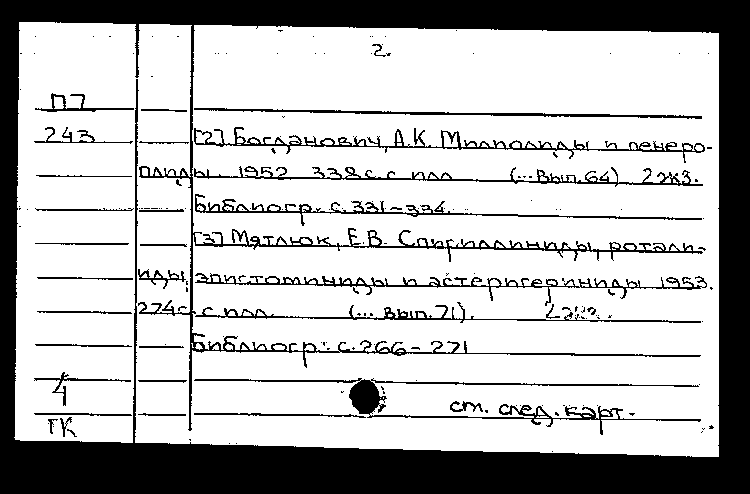 2.
П7
243 [2] Богданович, А.К. Милиолиды и пенеро-
плиды. 1952 338 с. с илл (...Вып.64) 2 экз.
Библиогр.: с.331-334.
[3] Мятлюк, Е.В. Спириллиниды, ротали-
иды, эпистоминиды и астеригериниды 1953.
274с. с илл. (... вып.71). 2 экз.
Библиогр.: с.266-271
4
ст. след. карт.
ГК